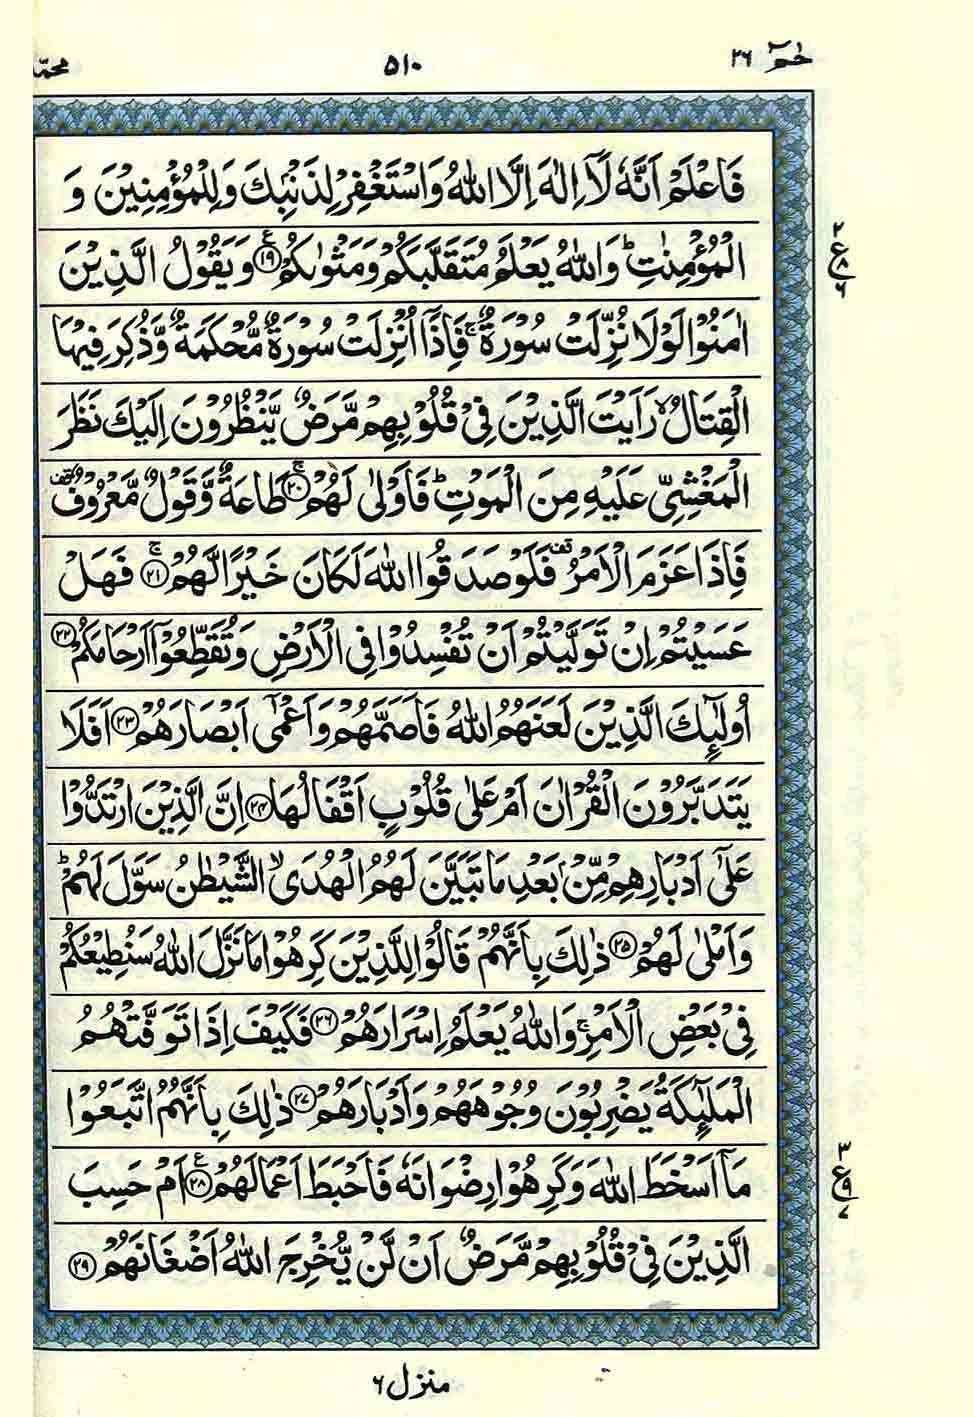 حٰمٓ ٢٦
٥١٠
محمّد
فَاعْلَمْ اَنَّهٗ لَاۤ اِلٰهَ اِلَّا اللّٰهُ وَاسْتَغْفِرْ لِذَنْۢبِكَ وَلِلْمُؤْمِنِيْنَ وَ
الْمُؤْمِنٰتِ ؕ وَاللّٰهُ يَعْلَمُ مُتَقَلَّبَكُمْ وَمَثْوٰىكُمْ ۧ﴿۱۹﴾ وَيَقُوْلُ الَّذِيْنَ
اٰمَنُوْا لَوْلَا نُزِّلَتْ سُوْرَةٌ ۚ فَاِذَاۤ اُنْزِلَتْ سُوْرَةٌ مُّحْكَمَةٌ وَّذُكِرَ فِيْهَا
الْقِتَالُ ۙ رَاَيْتَ الَّذِيْنَ فِىْ قُلُوْبِهِمْ مَّرَضٌ يَّنْظُرُوْنَ اِلَيْكَ نَظَرَ
الْمَغْشِىِّ عَلَيْهِ مِنَ الْمَوْتِ ؕ فَاَوْلٰى لَهُمْ ۚ﴿۲۰﴾ طَاعَةٌ وَّقَوْلٌ مَّعْرُوْفٌ قف
فَاِذَا عَزَمَ الْاَمْرُ قف فَلَوْ صَدَقُوا اللّٰهَ لَكَانَ خَيْرًا لَّهُمْ ۚ﴿۲۱﴾ فَهَلْ
عَسَيْتُمْ اِنْ تَوَلَّيْتُمْ اَنْ تُفْسِدُوْا فِى الْاَرْضِ وَتُقَطِّعُوْۤا اَرْحَامَكُمْ ﴿۲۲﴾
اُولٰٓئِكَ الَّذِيْنَ لَعَنَهُمُ اللّٰهُ فَاَصَمَّهُمْ وَاَعْمٰٓى اَبْصَارَهُمْ ﴿۲۳﴾ اَفَلَا
يَتَدَبَّرُوْنَ الْقُرْاٰنَ اَمْ عَلٰى قُلُوْبٍ اَقْفَالُهَا ﴿۲۴﴾ اِنَّ الَّذِيْنَ ارْتَدُّوْا
عَلٰٓى اَدْبَارِهِمْ مِّنْۢ بَعْدِ مَا تَبَيَّنَ لَهُمُ الْهُدَى ۙ الشَّيْطٰنُ سَوَّلَ لَهُمْ ؕ
وَاَمْلٰى لَهُمْ ﴿۲۵﴾ ذٰلِكَ بِاَنَّهُمْ قَالُوْا لِلَّذِيْنَ كَرِهُوْا مَا نَزَّلَ اللّٰهُ سَنُطِيْعُكُمْ
فِىْ بَعْضِ الْاَمْرِ ۚ وَاللّٰهُ يَعْلَمُ اِسْرَارَهُمْ ﴿۲۶﴾ فَكَيْفَ اِذَا تَوَفَّتْهُمُ
الْمَلٰٓئِكَةُ يَضْرِبُوْنَ وُجُوْهَهُمْ وَاَدْبَارَهُمْ ﴿۲۷﴾ ذٰلِكَ بِاَنَّهُمُ اتَّبَعُوْا
مَاۤ اَسْخَطَ اللّٰهَ وَكَرِهُوْا رِضْوَانَهٗ فَاَحْبَطَ اَعْمَالَهُمْ ۧ﴿۲۸﴾ اَمْ حَسِبَ
الَّذِيْنَ فِىْ قُلُوْبِهِمْ مَّرَضٌ اَنْ لَّنْ يُّخْرِجَ اللّٰهُ اَضْغَانَهُمْ ﴿۲۹﴾
٢
ع٨
٦
٣
ع٩
٧
منزل ٦